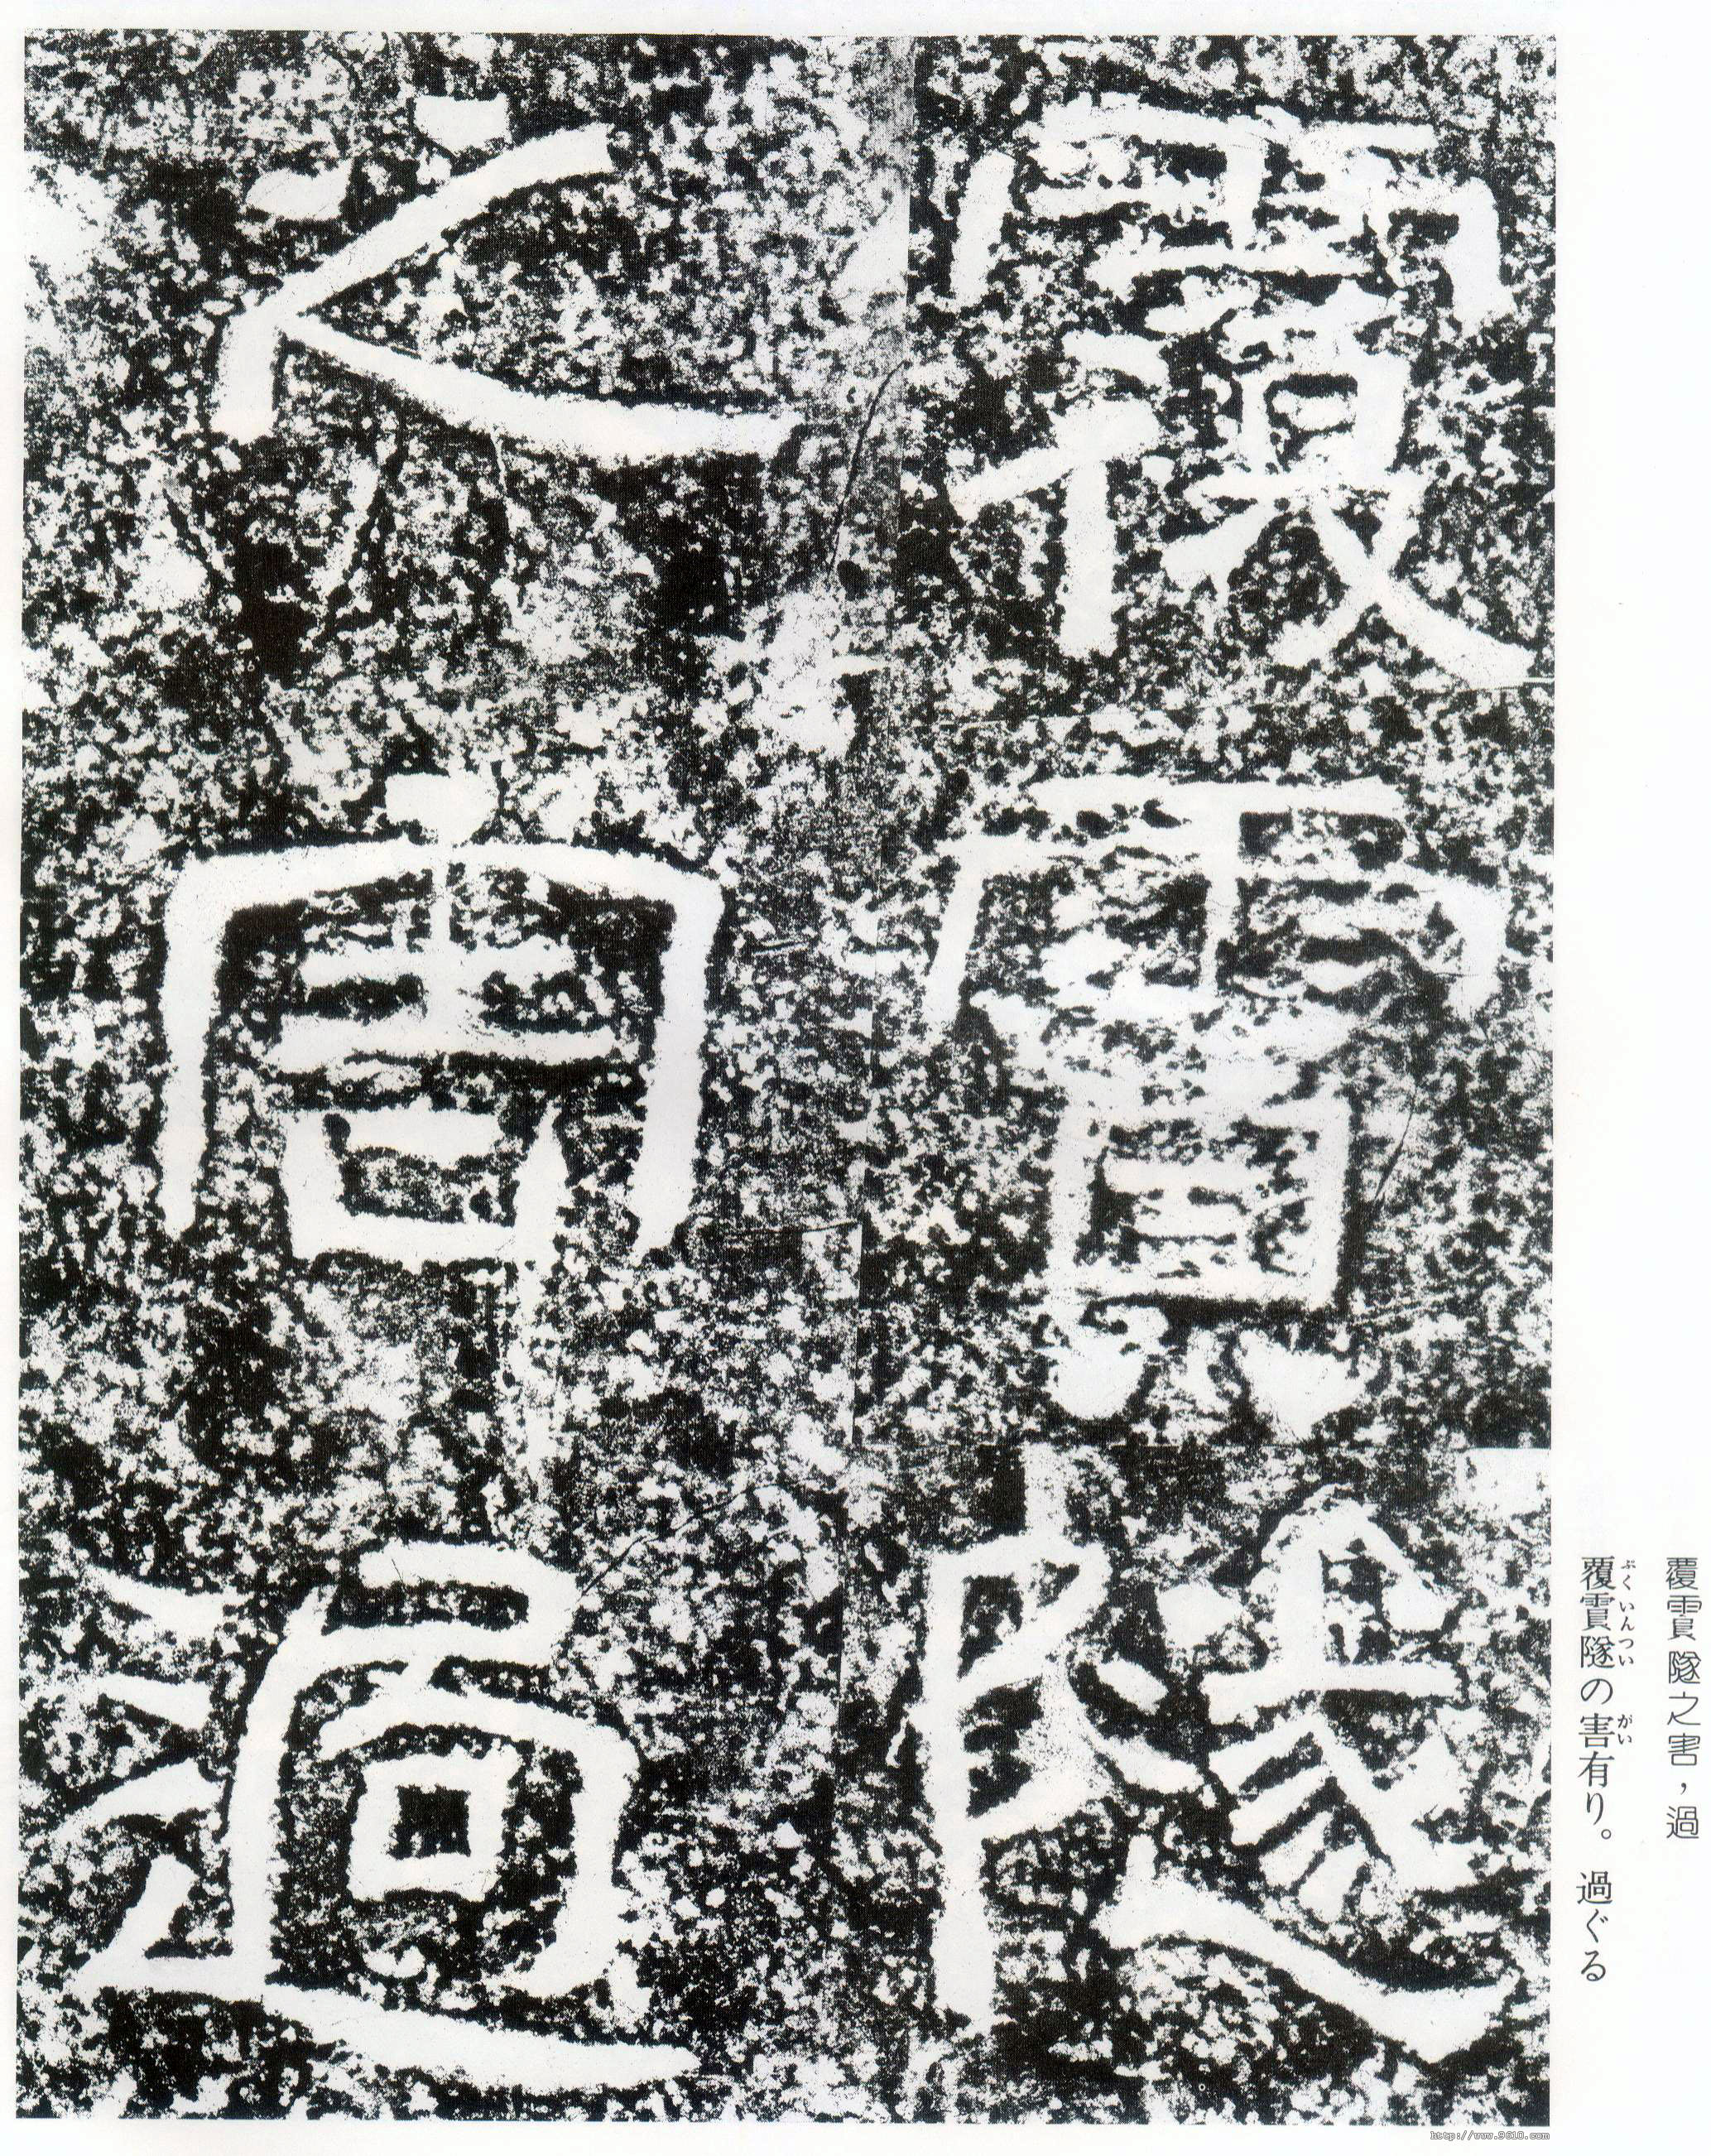 覆霣隧
之害過
覆霣隧之害，過
覆霣隧の害有り。過ぐる
ぶくいんつい がい
http://www.9610.com